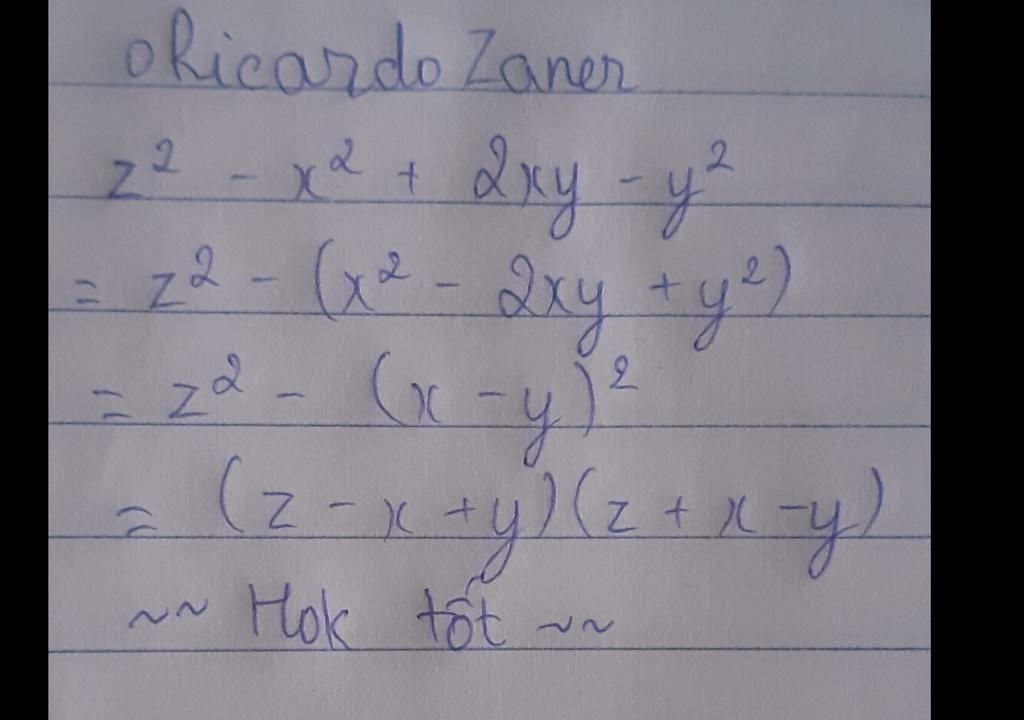 oRicardo Zaner
z² - x² + 2xy - y²
= z² - (x² - 2xy + y²)
= z² - (x - y)²
= (z - x + y)(z + x - y)
~~ Hok tốt ~~